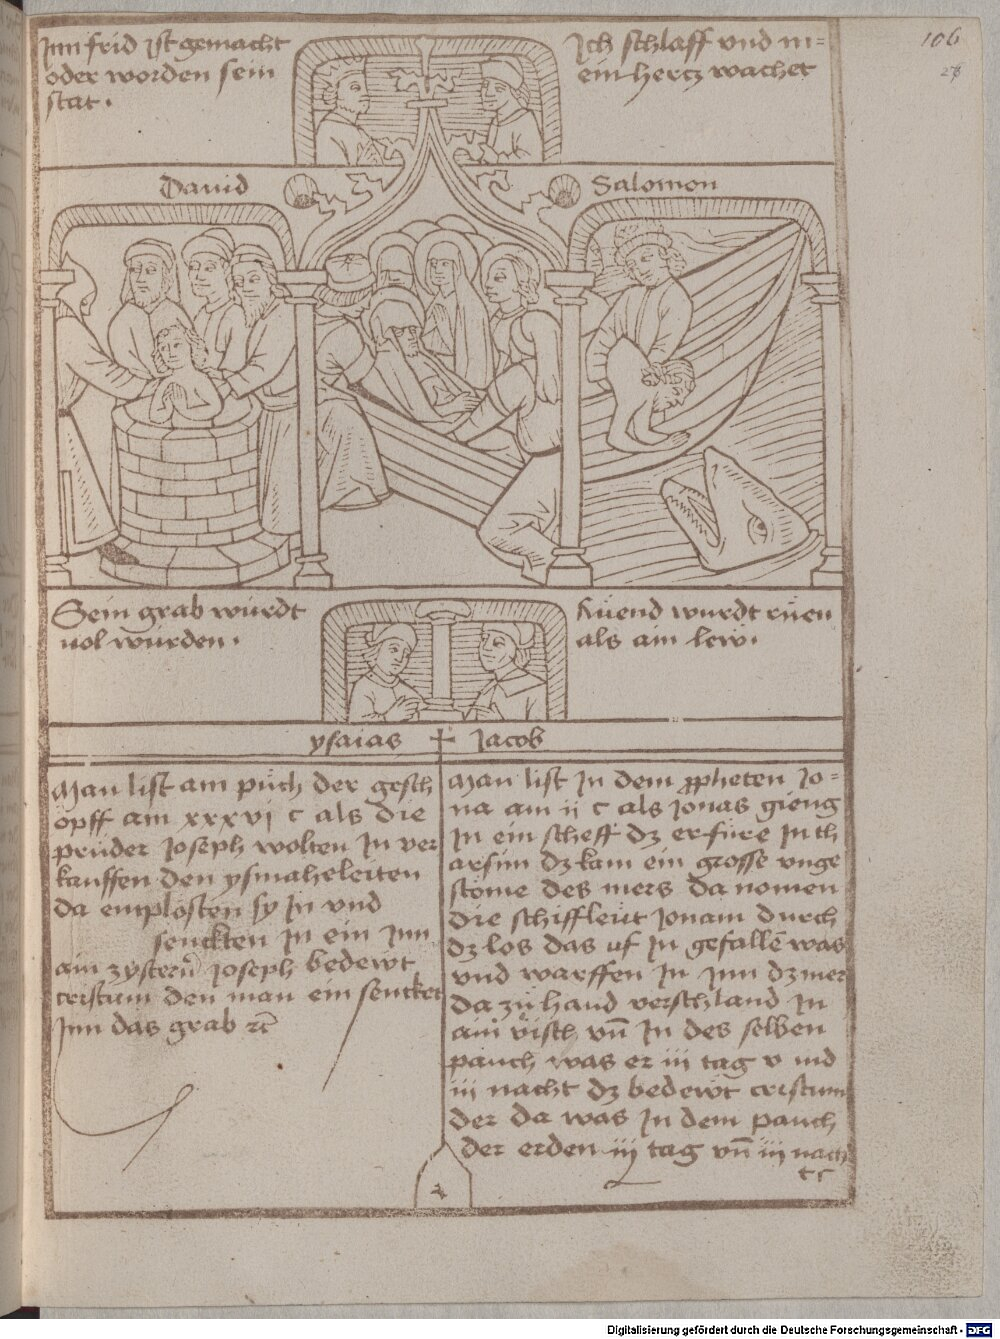 106
28
Inn frid ist gemacht
oder worden sein
stat .
Ich schlaff vnd m=
ein hertz wachet
Dauid
Salomon
Sein grab würdt
uol würden .
Rüend wurdt rüen
als ain lew .
ysaias
Jacob
Man list am püch der gesch
öpff am xxxvi c als die
prüder Joseph wolten In ver
kauffen den ysmaheleiten
da emplösten sy In vnd
senckten In ein Inn
ain zystern̄ Joseph bedewt
cristum den man ein sencket
Inn das grab rc̄
Man list In dem propheten Jo=
na am ij c als Jonas gieng
In ein scheff dz er füre In th
arsim dz kam ein grosse vnge
stöme des mers da nomen
die schiffleüt Jonam durch
dz los das uf In gefallē was
vnd warffen In Inn dz mer
da zü hand verschland In
ain visch vn̄ In des selben
pauch was er iii tag v nnd
iii nacht dz bedewt cristum
der da was In dem pauch
der erden iij tag vn̄ iij nach
tc
Digitalisierung gefördert durch die Deutsche Forschungsgemeinschaft - DFG